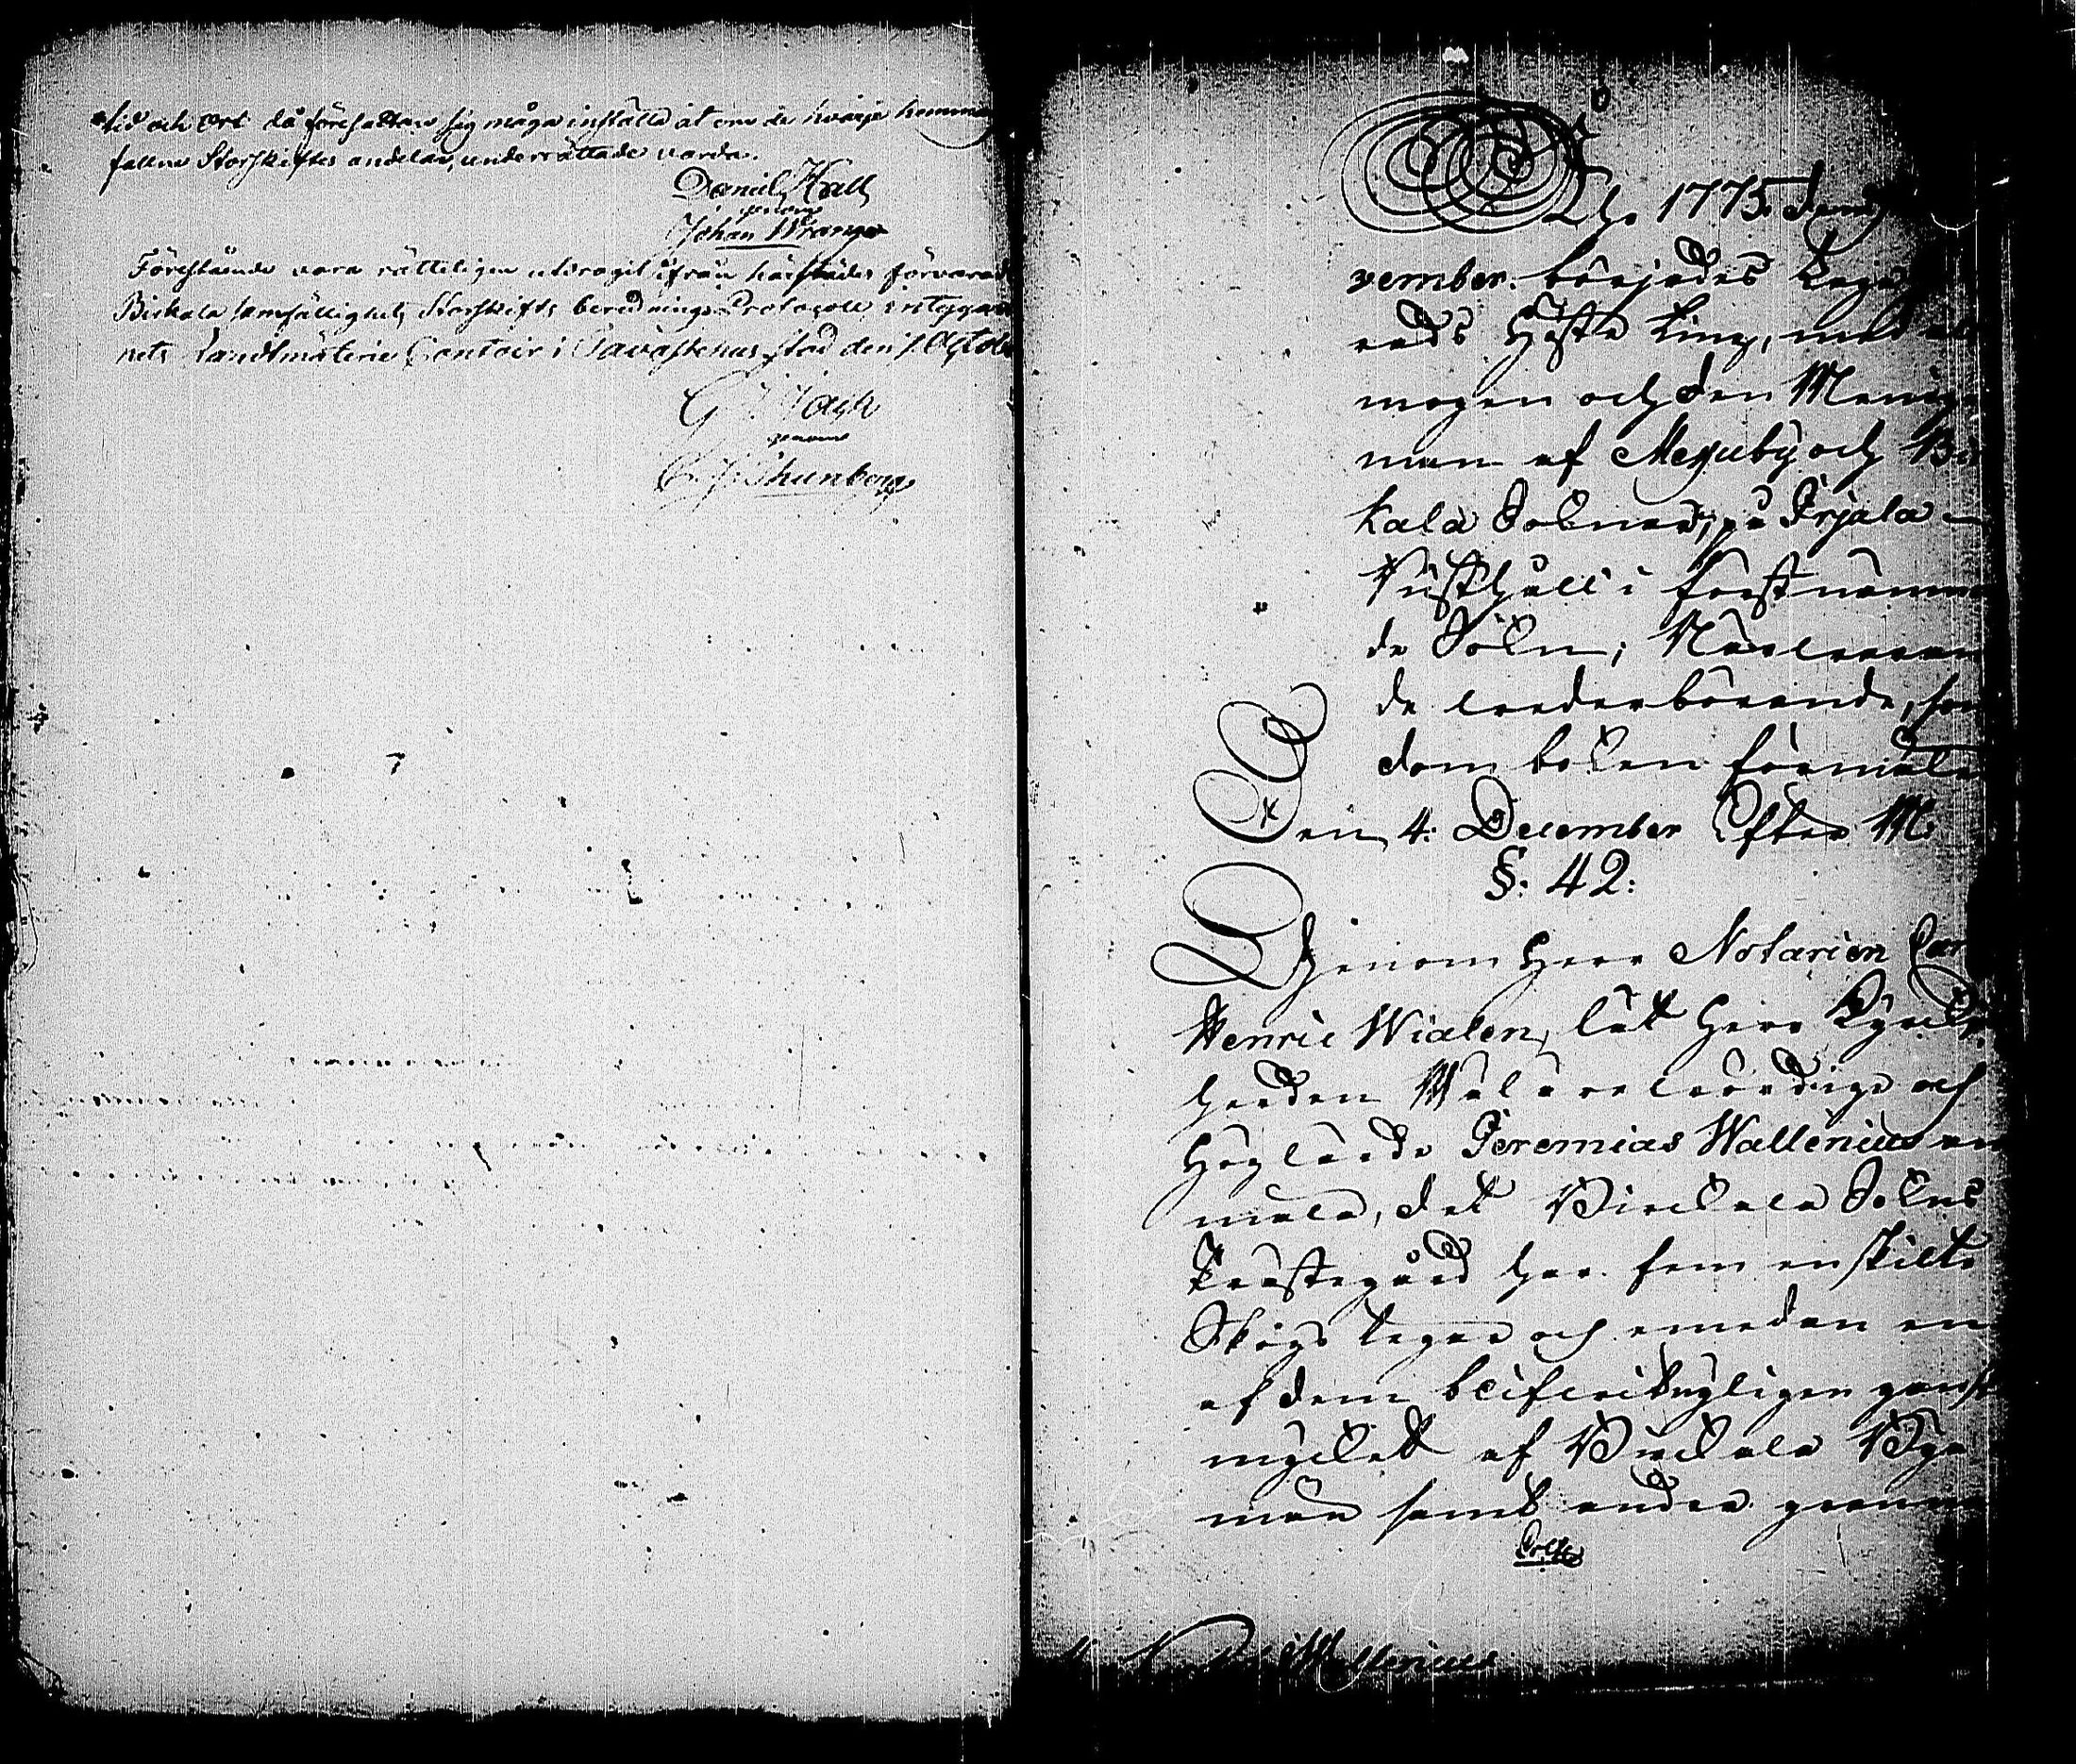 tid och ort då föresattan sig måga inställa at om de hvarje hemman
fallne Storskiftes andelar, underrättade varda.
Daniel Hall
genom
Johan Wranger
Förestående vara rätteligen utdragit ifrån härstädes förvarad
Birkala samfällighets Storskifts berednings Protocoll intygar
nets Landtmäterie Contoir i Tavastehus stad den 1. Octob
genom
Thunberg
Åhr 1775. den
vember börjades Laga
ands Höste Ting, med all
mogen och den Menige
man af Messuby och Bir
kala Soknar, på Pirjala
Rusthåll i först nämn
de Sokn; Närvaran
de vederbörande, som
domboken förmäler
Den 4: December Efter M:
§: 42:
Genom Herr Notarien Carl
Henric Wialen, lät Herr Kyrck
herden Wälärevördige och
Höglärde Jeremias Wallenius an
mäla, det Birckala Sokns
Prästegård har fem enskilte
Skogs tegar och emedan en
af dem blifvit mycket af Birckala Bya
män samt andra granna
Wallenius